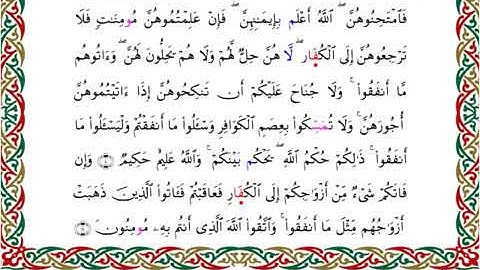 فَٱمۡتَحِنُوهُنَّۖ ٱللَّهُ أَعۡلَمُ بِإِيمَٰنِهِنَّۖ فَإِنۡ عَلِمۡتُمُوهُنَّ مُؤۡمِنَٰتٖ فَلَا
تَرۡجِعُوهُنَّ إِلَى ٱلۡكُفَّارِۖ لَا هُنَّ حِلّٞ لَّهُمۡ وَلَا هُمۡ يَحِلُّونَ لَهُنَّۖ وَءَاتُوهُم
مَّآ أَنفَقُواْۚ وَلَا جُنَاحَ عَلَيۡكُمۡ أَن تَنكِحُوهُنَّ إِذَآ ءَاتَيۡتُمُوهُنَّ
أُجُورَهُنَّۚ وَلَا تُمَسِّكُواْ بِعِصَمِ ٱلۡكَوَافِرِ وَسۡـَٔلُواْ مَآ أَنفَقۡتُمۡ وَلۡيَسۡـَٔلُواْ مَآ
أَنفَقُواْۚ ذَٰلِكُمۡ حُكۡمُ ٱللَّهِۖ يَحۡكُمُ بَيۡنَكُمۡۚ وَٱللَّهُ عَلِيمٌ حَكِيمٞ ۝ وَإِن
فَاتَكُمۡ شَيۡءٞ مِّنۡ أَزۡوَٰجِكُمۡ إِلَى ٱلۡكُفَّارِ فَعَاقَبۡتُمۡ فَـَٔاتُواْ ٱلَّذِينَ ذَهَبَتۡ
أَزۡوَٰجُهُم مِّثۡلَ مَآ أَنفَقُواْۚ وَٱتَّقُواْ ٱللَّهَ ٱلَّذِيٓ أَنتُم بِهِۦ مُوۡمِنُونَ ۝